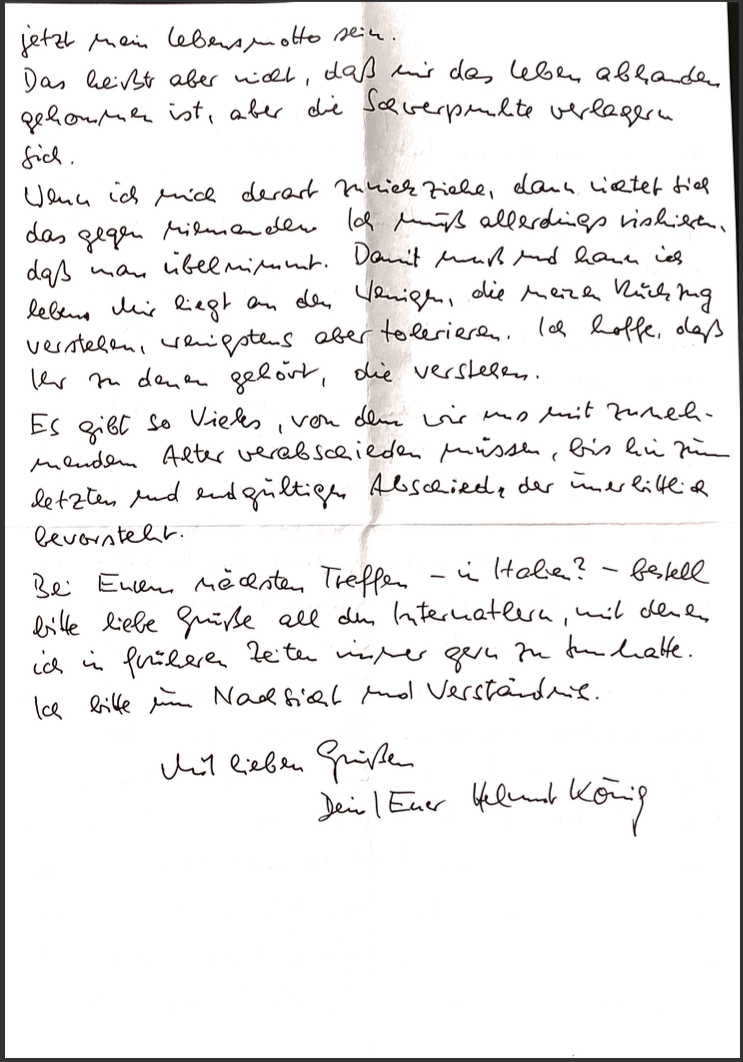 jetzt mein Lebensmotto sein.
Das heißt aber nicht, daß mir das Leben abhanden
gekommen ist, aber die Schwerpunkte verlagern
sich.
Wenn ich mich derart zurückziehe, dann richtet sich
das gegen niemanden. Ich muß allerdings riskieren,
daß man übelnimmt. Damit muß und kann ich
leben. Mir liegt an den Wenigen, die meinen Rückzug
verstehen, wenigstens aber tolerieren. Ich hoffe, daß
Ihr zu denen gehört, die verstehen.
Es gibt so Vieles, von dem wir uns mit zuneh-
mendem Alter verabschieden müssen, bis hin zum
letzten und endgültigen Abschied, der unerbittlich
bevorsteht.
Bei Eurem nächsten Treffen – in Italien? – bestell
bitte liebe Grüße all den Internatlern, mit denen
ich in früheren Zeiten immer gern zu tun hatte.
Ich bitte um Nachsicht und Verständnis.
Mit lieben Grüßen
Dein/Euer Helmut König